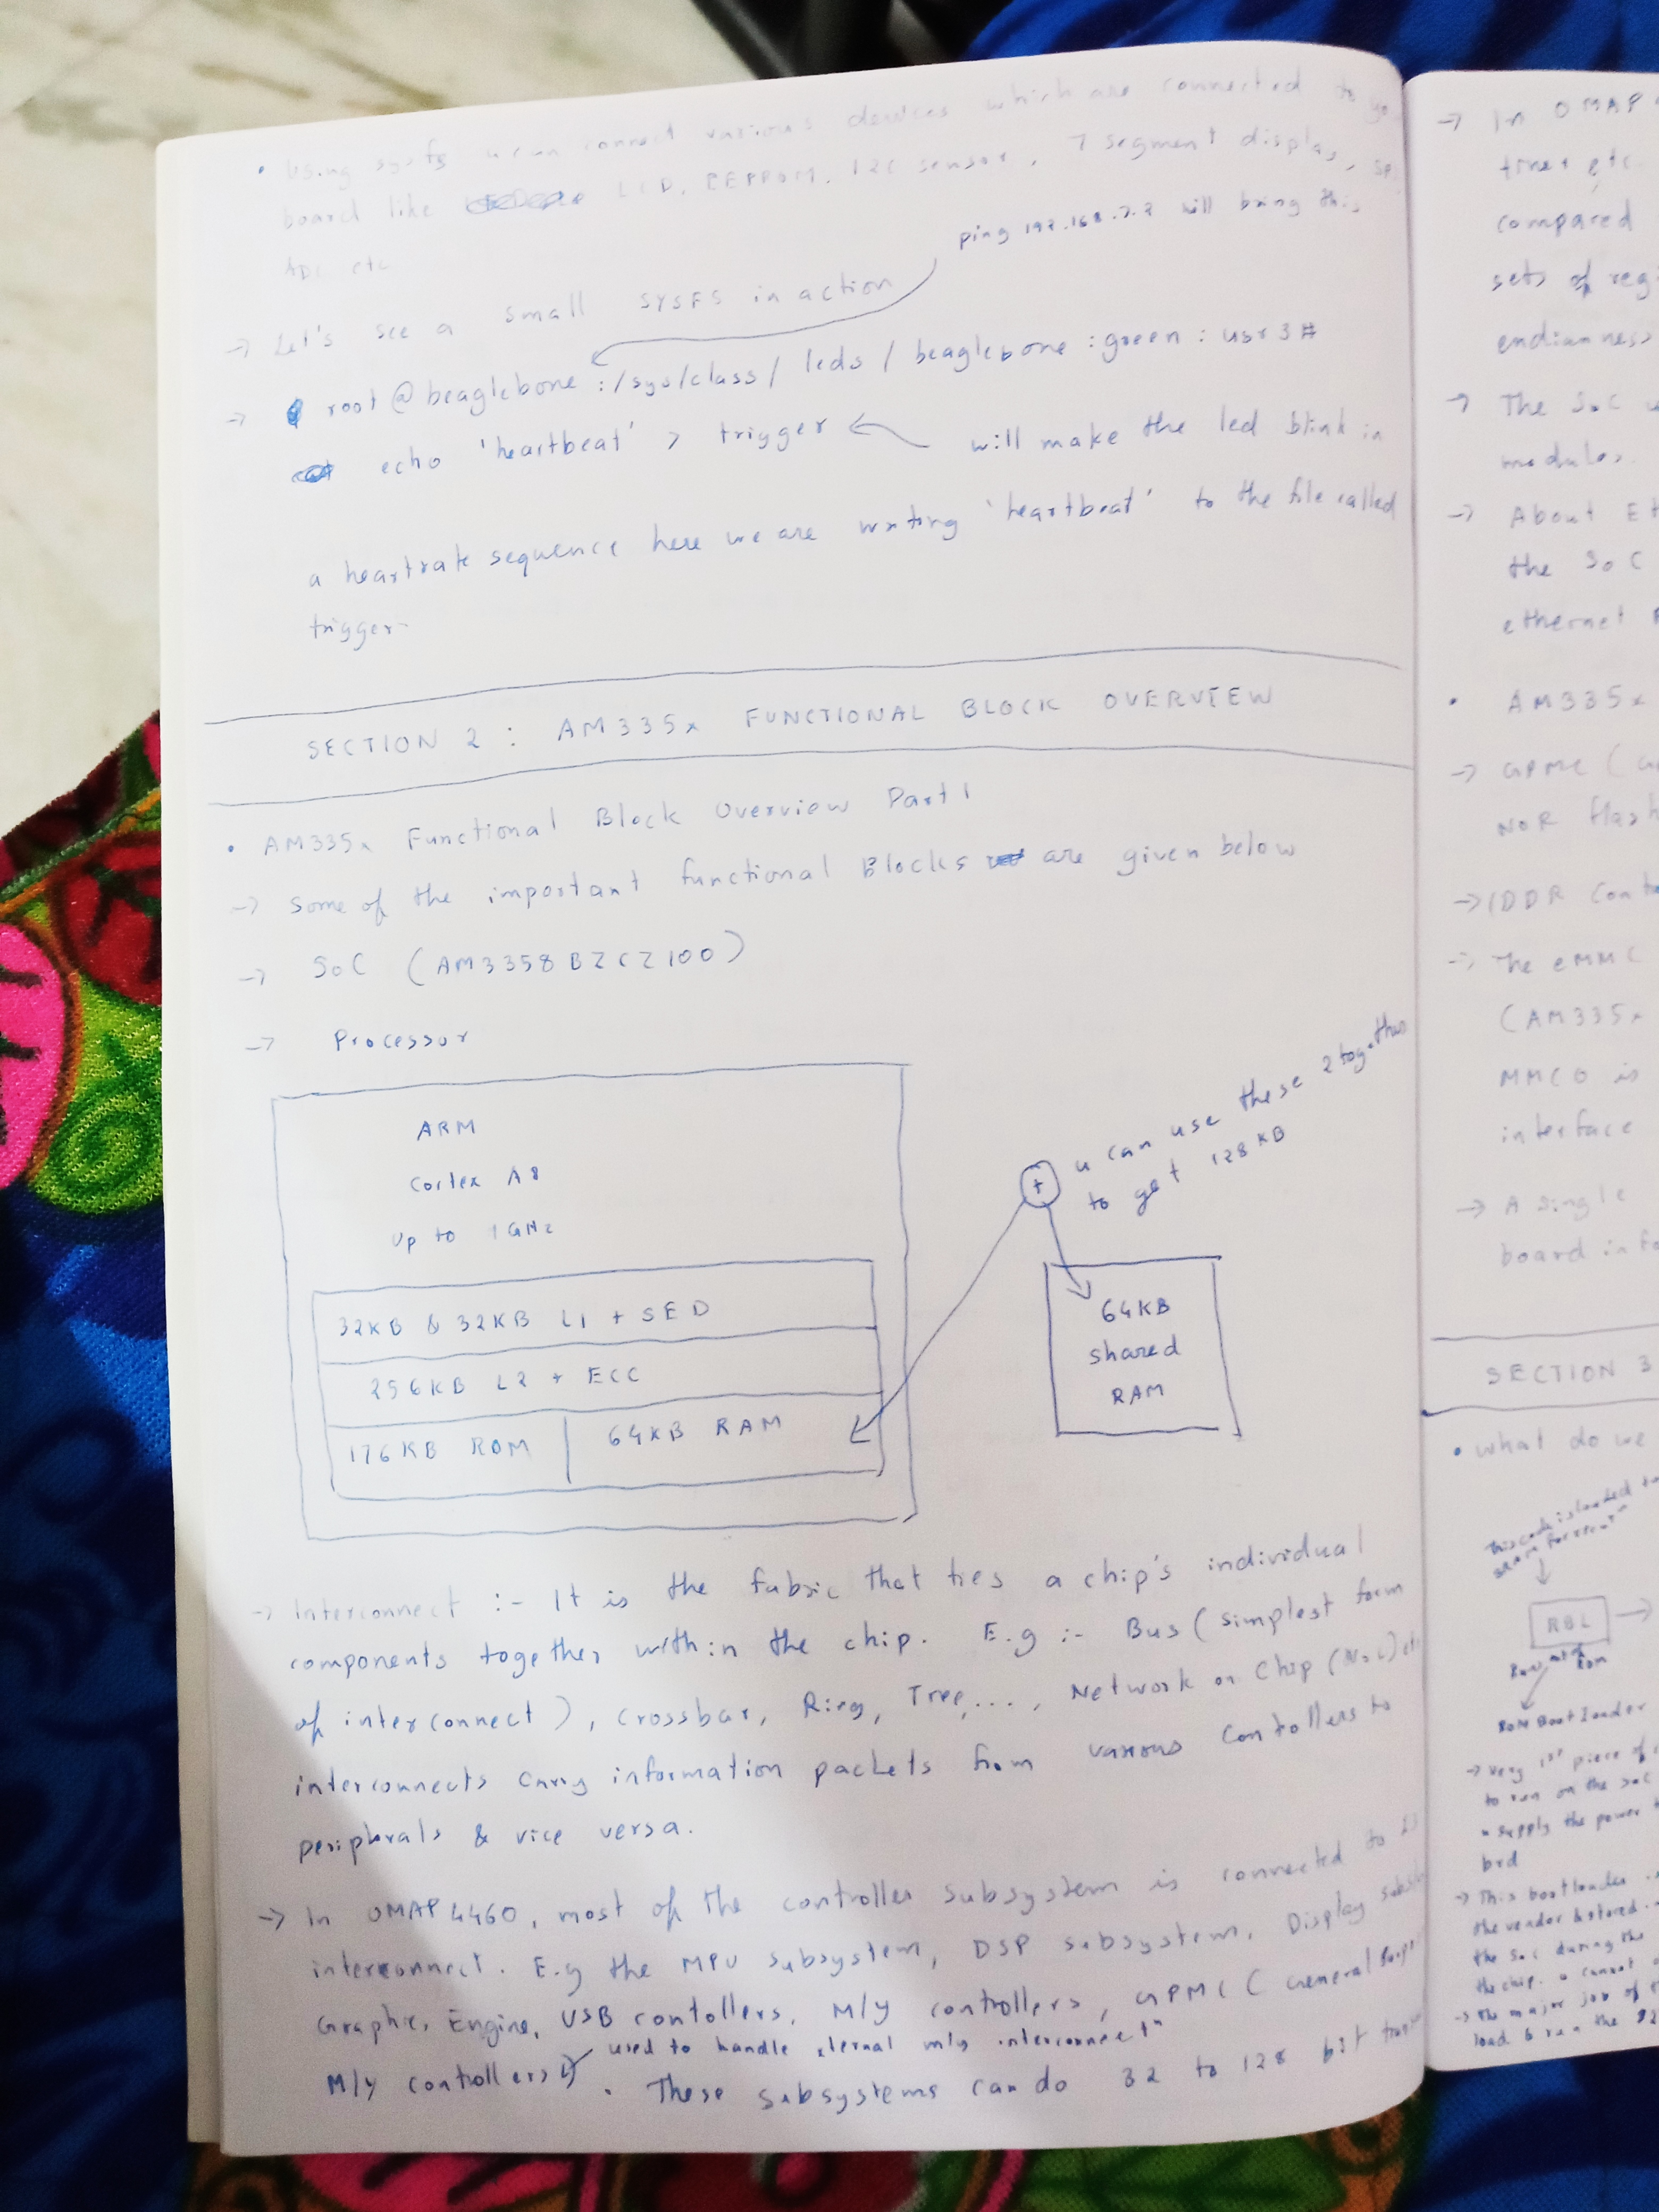 • Using sysfs u can connect various devices which are connected to yo
board like LCD, EEPROM, I2C sensor, 7 segment display,
ADC etc
ping 192.168.7.2 will bring this
→ Let's see a small SYSFS in action
→ root@beaglebone:/sys/class/leds/beaglebone:green:usr3#
echo 'heartbeat' > trigger ← will make the led blink in
a heartrate sequence here we are writing 'heartbeat' to the file called
trigger.
SECTION 2 : AM335x FUNCTIONAL BLOCK OVERVIEW
• AM335x Functional Block Overview Part 1
→ Some of the important functional Blocks are given below
→ SoC (AM3358BZCZ100)
→ Processor
ARM
Cortex A8
Up to 1GHz
32KB & 32KB L1 + SED
256KB L2 + ECC
176KB ROM
64KB RAM
+
u can use these 2 together
to get 128KB
64KB
shared
RAM
→ Interconnect :- It is the fabric that ties a chip's individual
components together within the chip. E.g :- Bus (simplest form
of interconnect), crossbar, Ring, Tree,..., Network on Chip (NoC)
interconnects carry information packets from various controllers to
peripherals & vice versa.
→ In OMAP4460, most of the controller subsystem is connected to
interconnect. E.g the MPU subsystem, DSP subsystem, Display
Graphic, Engine, USB contollers, M/y controllers, GPMC (General
used to handle xternal m/y interconnect"
M/y controllers). These subsystems can do 32 to 128 bit
→ In OMAP
timer etc.
compared
sets of reg
endianness
→ The SoC
modules.
→ About Et
the SoC
ethernet
• AM335x
→ GPMC (
NOR flash
→ DDR Cont
→ The eMMC
(AM335x
MMC0 is
interface
→ A single
board info
SECTION 3
• What do we
This code is loaded to
RBL →
ROM Boot loader
→ Very 1st piece of
to run on the soc
supply the power
brd
→ This bootloader
the vendor & stored
the soc during the
the chip. u cannot
→ The major job of
load & run the